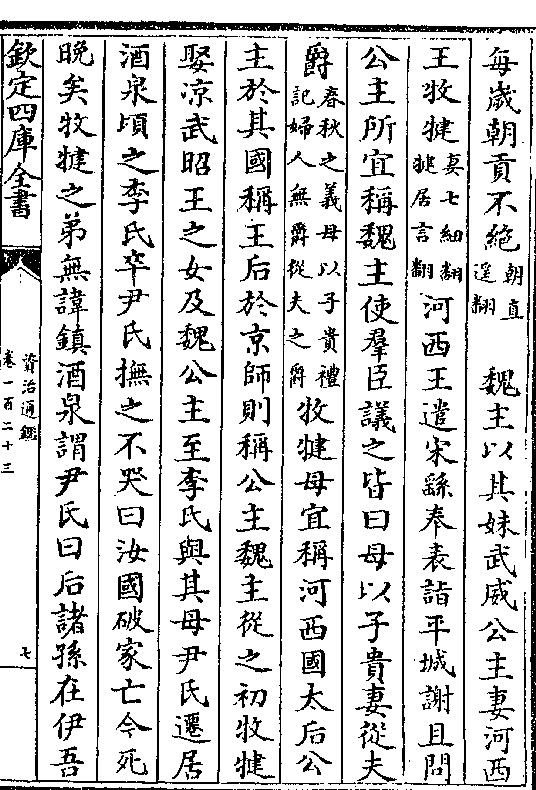 每歲朝貢不絕朝直遥翻 魏主以其妹武威公主妻河西
王牧犍妻七細翻犍居言翻河西王遣宋繇奉表詣平城謝且問
公主所宜稱魏主使羣臣議之皆曰母以子貴妻從夫
爵春秋之義母以子貴禮記婦人無爵從夫之爵牧犍母宜稱河西國太后公
主於其國稱王后於京師則稱公主魏主從之初牧犍
娶涼武昭王之女及魏公主至李氏與其母尹氏遷居
酒泉頃之李氏卒尹氏撫之不哭曰汝國破家亡今死
晚矣牧犍之弟無諱鎮酒泉謂尹氏曰后諸孫在伊吾
欽定四庫全書
資治通鑑
卷一百二十三
七